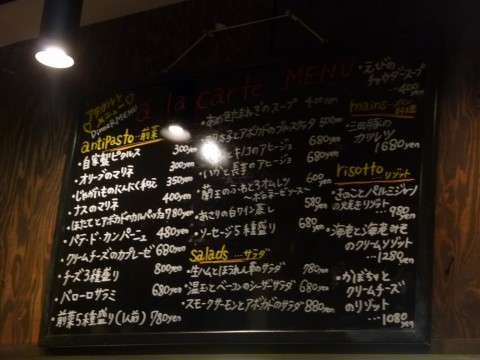 アラカルト
メニュー
DINNER MENU
a la carte MENU
antipasto 前菜
・自家製ピクルス 300yen
・オリーブのマリネ 300yen
・じゃがいものにんにく和え 350yen
・ナスのマリネ 400yen
・ほたてとアボカドのカルパッチョ 780yen
・パテ・ド・カンパーニュ 480yen
・クリームチーズのカプレーゼ 680yen
・チーズ3種盛り 800yen
・バローロサラミ 680yen
・前菜5種盛り(1人前) 780yen
スープ 400yen
とアボカドの
キノコのアヒージョ 680yen
・いかと長芋のアヒージョ 680yen
・蘭王のふもふもオムレツ 600yen
〜ボロネーゼソース〜
・あさりの白ワイン蒸し 580yen
・ソーセージ5種盛り 680yen
salads ...サラダ
・生ハムとほうれん草のサラダ 780yen
・温玉とベーコンのシーザーサラダ 680yen
・スモークサーモンとアボカドのサラダ 880yen
・えびの
チャウダースープ
...400yen
mains
・三田豚の
カツレツ
1680yen
risotto リゾット
・きのことパルミジャーノ
の焼きリゾット
...980yen
・海老と海老みその
クリームリゾット
...1280yen
・かぼちゃと
クリームチーズ
のリゾット
...1080yen